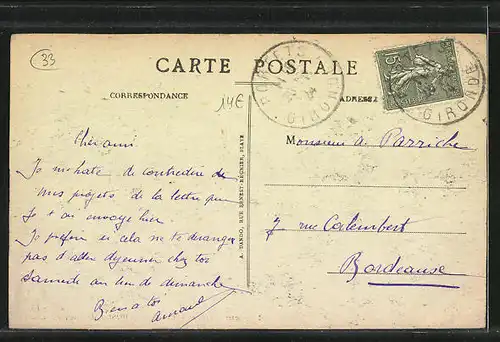 33
CARTE POSTALE
CORRESPONDANCE
14€
ADRESSE
GIRONDE
15c
GIRONDE
Cher ami
Je me hate de contredire de
mes projets de la lettre que
je t'ai envoye hier.
Je préfère si cela ne te derange
pas d'aller dejeuner chez toi
Samedi au lieu de dimanche
Bien a toi
Monsieur A. Parriche
7 rue Calembert
Bordeause
A. DANDO, RUE ERNEST-RÉGNIER,